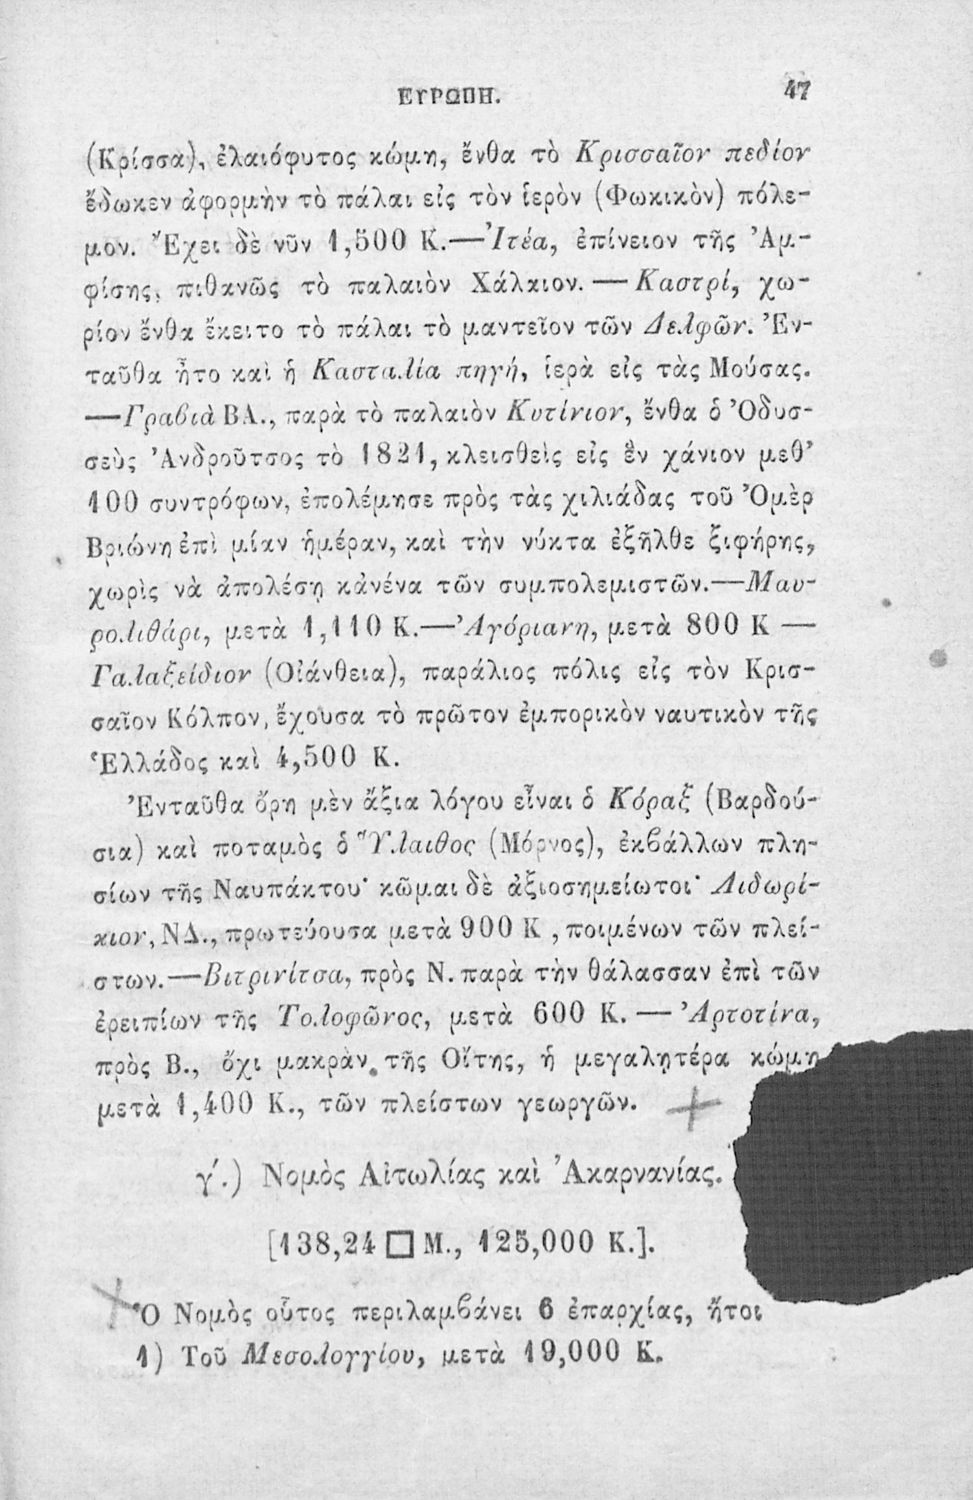 ΕΥΡΩΠΗ. 47
(Κρίσσα), ἐλαιόφυτος κώμη, ἔνθα τὸ Κρισσαῖον πεδίον
ἔδωκεν ἀφορμὴν τὸ πάλαι εἰς τὸν ἱερὸν (Φωκικὸν) πόλε-
μον. Ἔχει δὲ νῦν 1,500 Κ.—Ἰτέα, ἐπίνειον τῆς Ἀμ-
φίσης, πιθανῶς τὸ παλαιὸν Χάλαιον. — Καστρί, χω-
ρίον ἔνθα ἔκειτο τὸ πάλαι τὸ μαντεῖον τῶν Δελφῶν. Ἐν-
ταῦθα ἦτο καὶ ἡ Κασταλία πηγή, ἱερὰ εἰς τὰς Μούσας.
—Γραβιὰ ΒΑ., παρὰ τὸ παλαιὸν Κυτίνιον, ἔνθα ὁ Ὀδυσ-
σεὺς Ἀνδροῦτσος τὸ 1821, κλεισθεὶς εἰς ἓν χάνιον μεθ’
100 συντρόφων, ἐπολέμησε πρὸς τὰς χιλιάδας τοῦ Ὀμὲρ
Βριώνη ἐπὶ μίαν ἡμέραν, καὶ τὴν νύκτα ἐξῆλθε ξιφήρης,
χωρὶς νὰ ἀπολέσῃ κἀνένα τῶν συμπολεμιστῶν.—Μαυ-
ρολιθάρι, μετὰ 1,110 Κ.—Ἀγόριανη, μετὰ 800 Κ —
Γαλαξείδιον (Οἰάνθεια), παράλιος πόλις εἰς τὸν Κρισ-
σαῖον Κόλπον, ἔχουσα τὸ πρῶτον ἐμπορικὸν ναυτικὸν τῆς
Ἑλλάδος καὶ 4,500 Κ.
Ἐνταῦθα ὄρη μὲν ἄξια λόγου εἶναι ὁ Κόραξ (Βαρδού-
σια) καὶ ποταμὸς ὁ Ὕλαιθος (Μόρνος), ἐκβάλλων πλη-
σίων τῆς Ναυπάκτου· κῶμαι δὲ ἀξιοσημείωτοι· Λιδωρί-
κιον, ΝΔ., πρωτεύουσα μετὰ 900 Κ , ποιμένων τῶν πλεί-
στων.—Βιτρινίτσα, πρὸς Ν. παρὰ τὴν θάλασσαν ἐπὶ τῶν
ἐρειπίων τῆς Τολοφῶνος, μετὰ 600 Κ. — Ἀρτοτίνα,
πρὸς Β., ὄχι μακρὰν τῆς Οἴτης, ἡ μεγαλητέρα κώμη
μετὰ 1,400 Κ., τῶν πλείστων γεωργῶν.
γ΄.) Νομὸς Αἰτωλίας καὶ Ἀκαρνανίας.
[138,24 □ Μ., 125,000 Κ.].
Ὁ Νομὸς οὗτος περιλαμβάνει 6 ἐπαρχίας, ἤτοι
1) Τοῦ Μεσολογγίου, μετὰ 19,000 Κ.